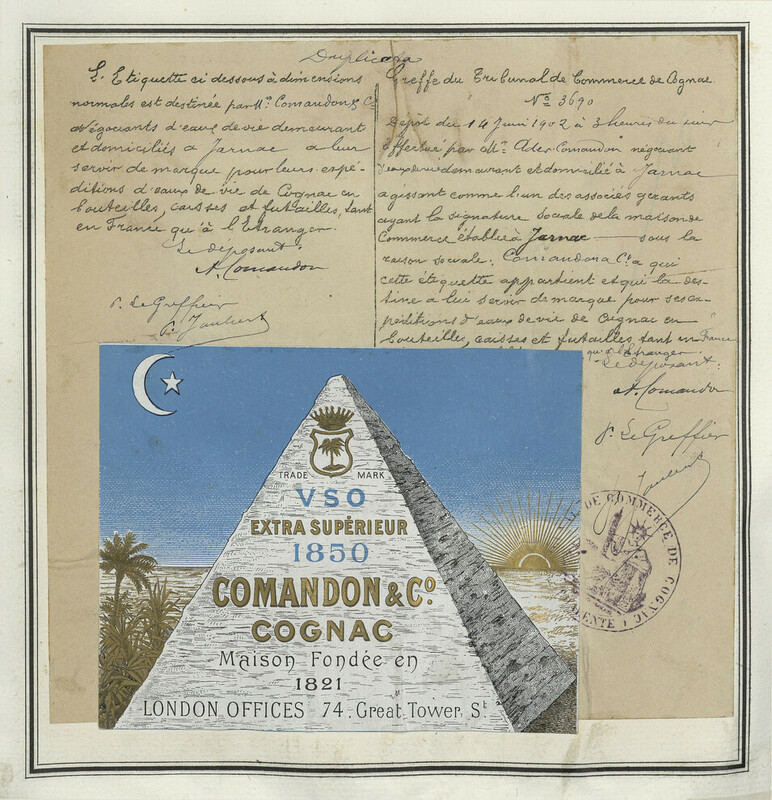 Duplicata
L'Etiquette ci dessous à dimensions
normales est destinée par Mrs. Comandon & Co
Négociants d'eaux de vie demeurant
et domiciliés à Jarnac à leur
servir de marque pour leurs expé-
ditions d'eaux de vie de Cognac en
bouteilles, caisses et futailles, tant
en France qu'à l'Etranger.
Le déposant:
A. Comandon
P. Le Greffier
Greffe du Tribunal de Commerce de Cognac
No 3690
Dépôt du 14 Juin 1902 à 3 heures du soir
Effectué par Mr. Ader-Comandon négociant
d'eaux de vie demeurant et domicilié à Jarnac
agissant comme l'un des associés gérants
ayant la signature sociale de la maison de
Commerce établie à Jarnac sous la
raison sociale: Comandon & Co. à qui
cette étiquette appartient et qui la des-
tine à lui servir de marque pour ses ex-
péditions d'eaux de vie de Cognac en
bouteilles, caisses et futailles, tant en France
qu'à l'Etranger.
Le déposant:
A. Comandon
P. Le Greffier
DE COMMERCE DE COGNAC
TRADE MARK
VSO
EXTRA SUPÉRIEUR
1850
COMANDON & Co.
COGNAC
Maison Fondée en
1821
LONDON OFFICES 74, Great Tower, St